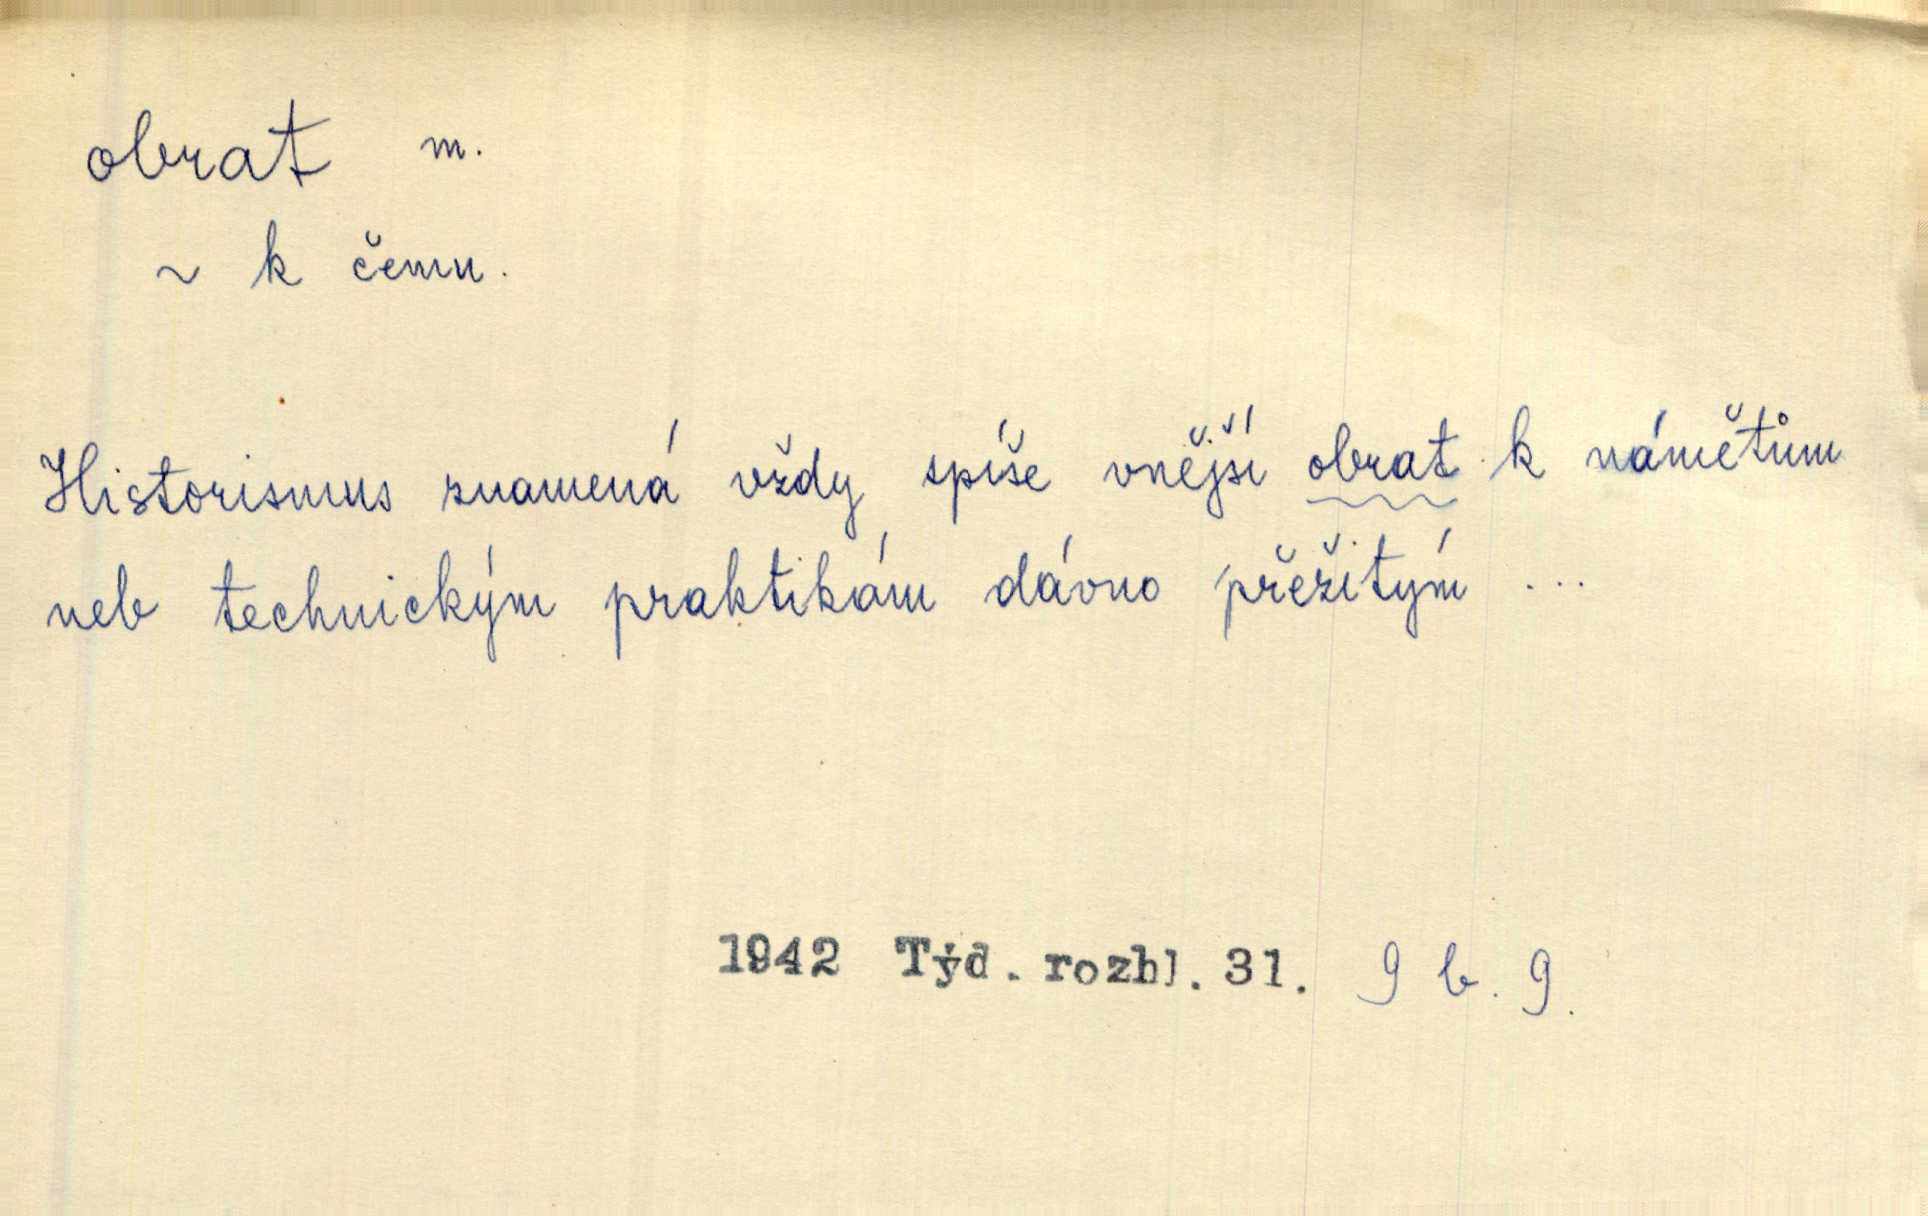 obrat m.
~ k čemu.
Historismus znamená vždy spíše vnější obrat k námětům
neb technickým praktikám dávno přežitým ...
1942 Týd. rozhl. 31. 9 b. 9.